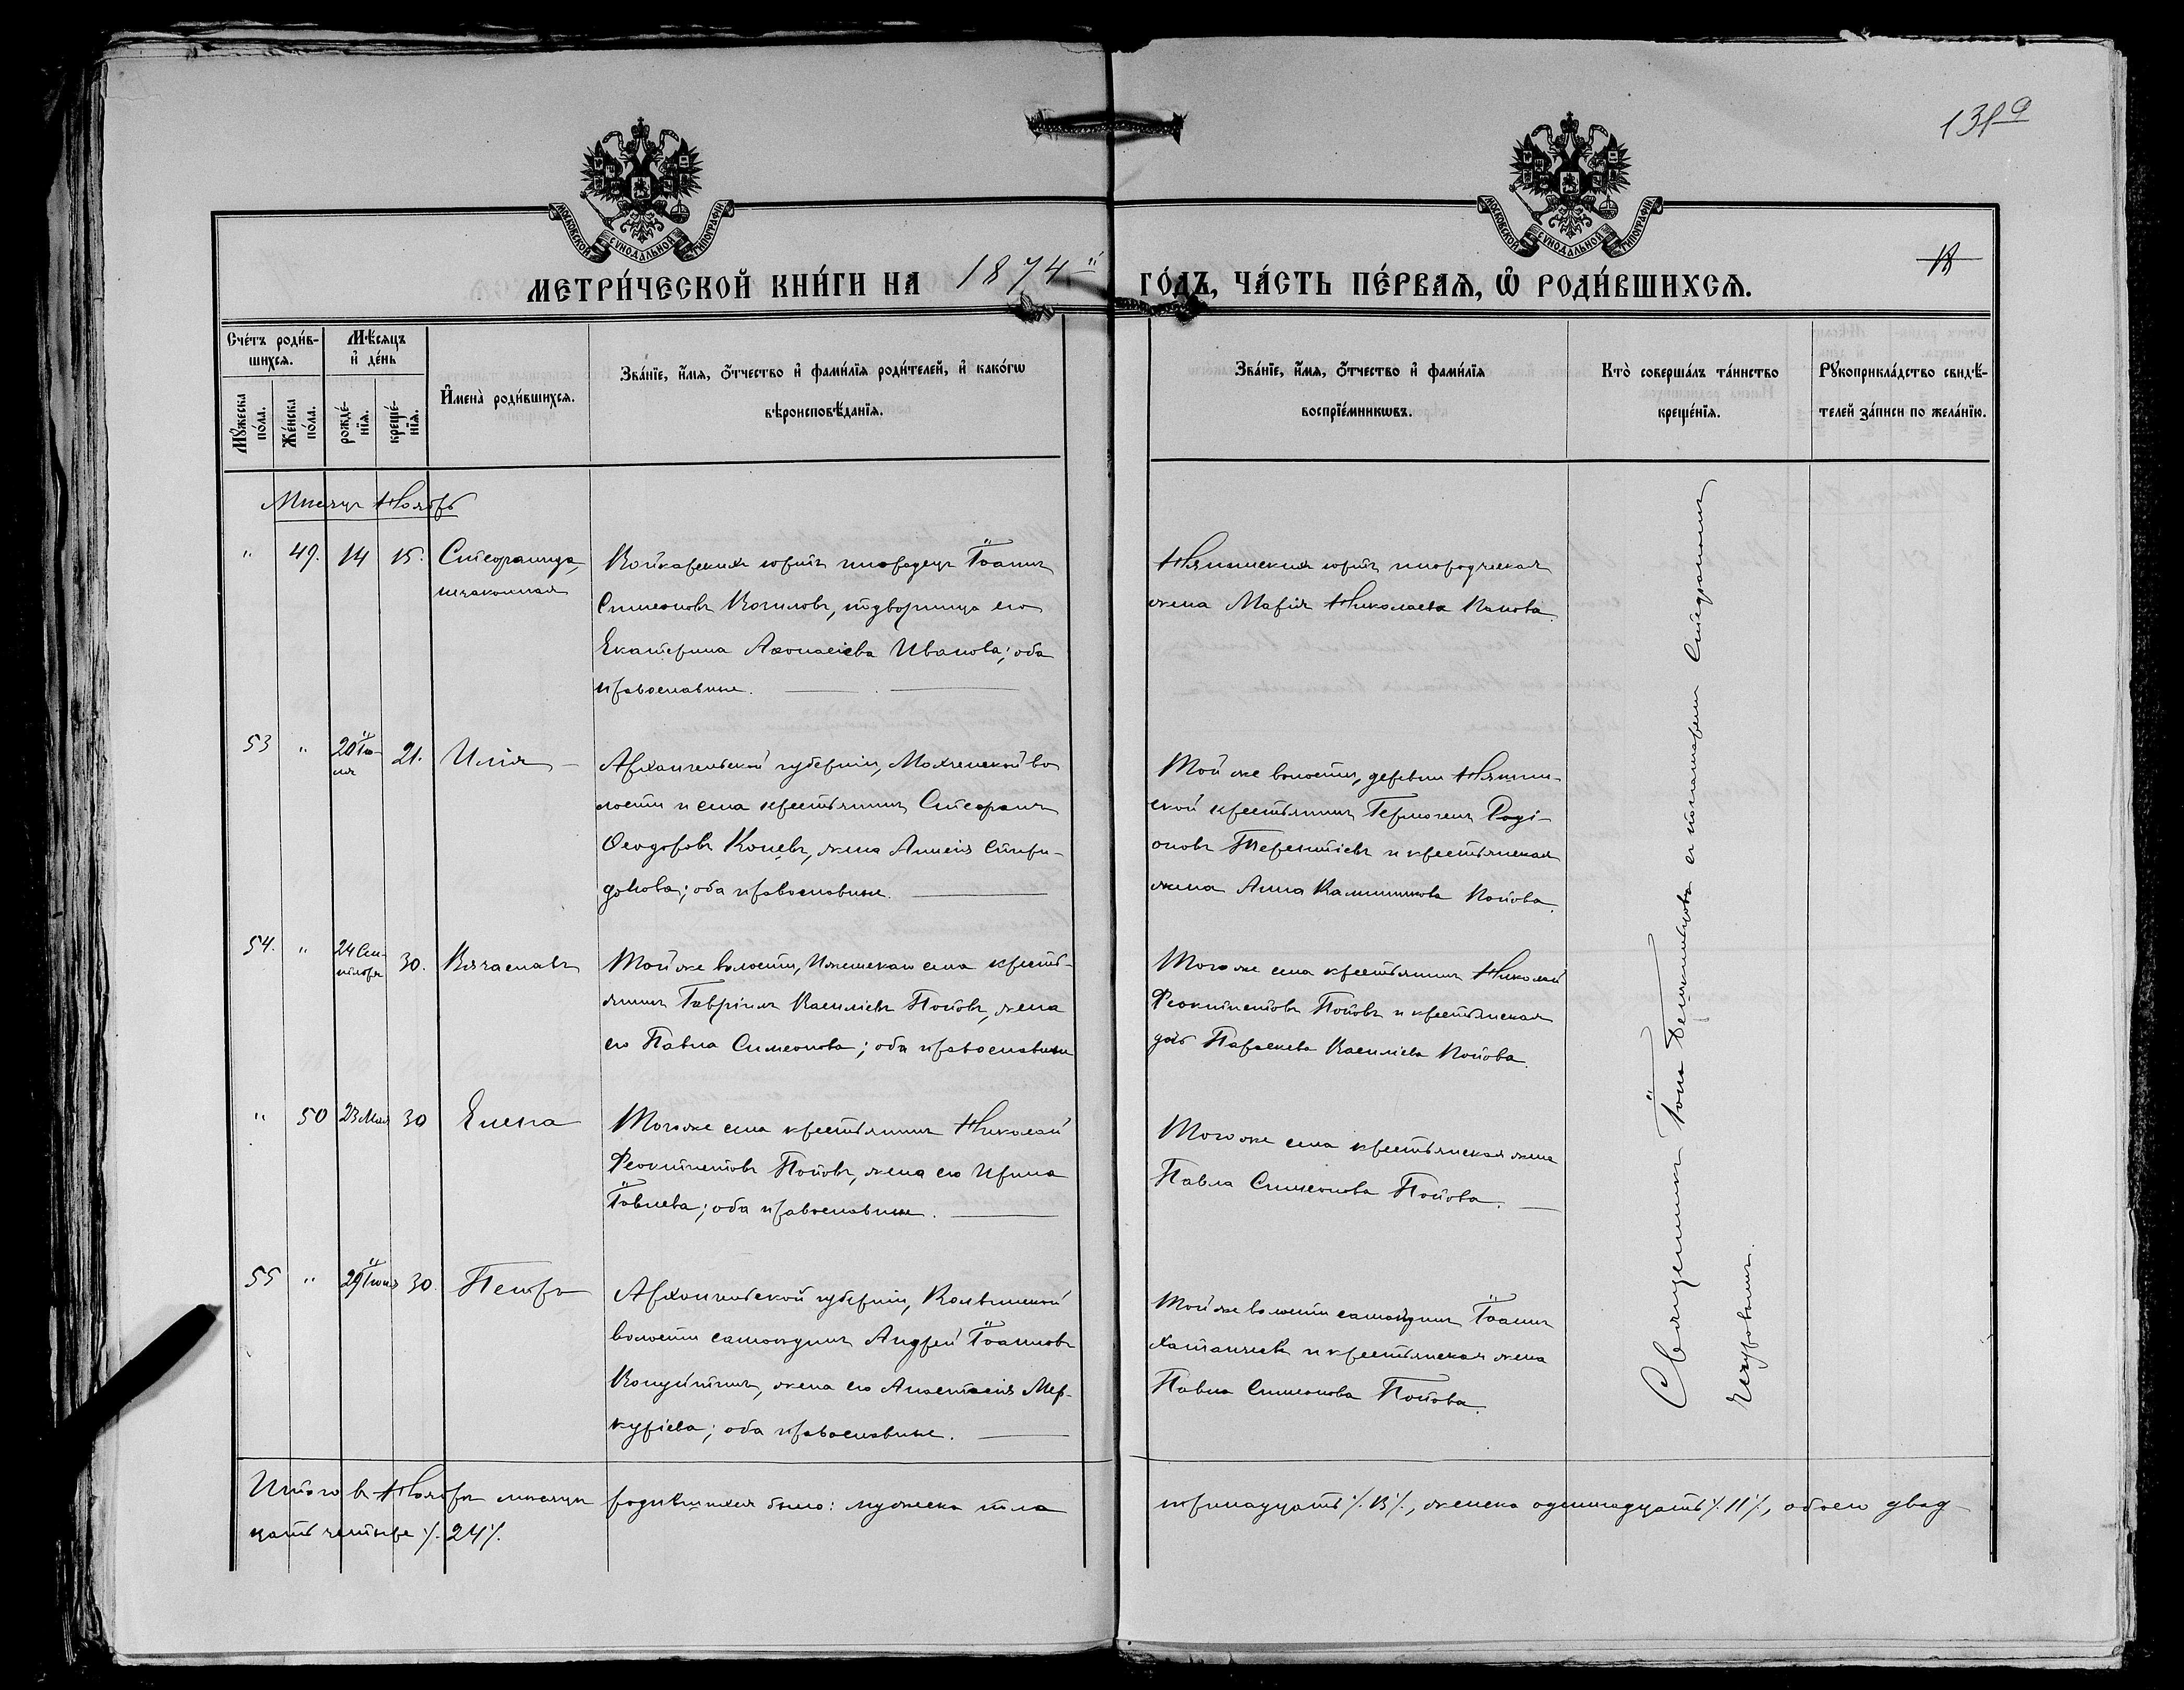 1319
18
МОСКОВСКОЙ СѴНОДАЛЬНОЙ ТИПОГРАФІИ
МОСКОВСКОЙ СѴНОДАЛЬНОЙ ТИПОГРАФІИ
МЕТРИ́ЧЕСКОЙ КНИ́ГИ НА 1874й ГО́ДЪ, ЧА́СТЬ ПЕ́РВАѦ, Ѽ РОДИ́ВШИХСѦ.
Сче́тъ роди́в-
шихсѧ.
Мꙋжеска по́ла.
Же́нска по́ла.
Мѣ́сѧцъ
и҆ де́нь
рожде́-
нїѧ.
креще́-
нїѧ.
И҆мена̀ роди́вшихсѧ.
Зва́нїе, и҆́мѧ, ѻ҆́тчество и҆ фами́лїѧ роди́телей, и҆ како́гѡ
вѣроисповѣ́данїѧ.
Зва́нїе, и҆́мѧ, ѻ҆́тчество и҆ фами́лїѧ
воспрїе́мникѡвъ.
Кто̀ соверша́лъ та́инство
креще́нїѧ.
Рꙋкоприкла́дство свидѣ́-
телей за́писи по жела́нїю.
Мѣсяцъ Ноябрь
" 49. 14 15. Стефанида,
незаконная
Войкарскихъ юртъ инородецъ Іоаннъ
Симеоновъ Кочиловъ, подворница его
Екатерина Аѳонасіева Иванова; оба
православные.
Нянинскихъ юртъ инородческая
жена Марія Николаева
53 " 20 Ію-
ля 21. Илія
Архангельской губерніи, Мохченской во
лости и села крестьянинъ Стефанъ
Ѳеодоровъ Коневъ, жена Анисія Спири-
донова; оба православные.
Той же волости, деревни
ской крестьянинъ Гермогенъ Роді-
оновъ Терентіевъ и крестьянская
жена Анна Калинникова Попова.
54. " 24 Сен-
тября 30. Вячеславъ
Той же волости, Ижемскаго села кресть-
янинъ Гавріилъ Василіевъ Поповъ, жена
его Павла Симеонова; оба православные
Того же села крестьянинъ Николай
Феоктистовъ Поповъ и крестьянская
дочь Параскева Василіева Попова.
" 50 23 Мая 30 Елена
Того же села крестьянинъ Николай
Феоктистовъ Поповъ, жена его Ирина
Іовлева; оба православные.
Того же села крестьянская жена
Павла Симеонова Попова.
55 " 29 Іюня 30. Петръ
Архангельской губерніи, Колвинской
волости самоединъ Андрей Іоанновъ
жена его Анастасія Мер-
куріева; оба православные.
Той же волости самоединъ Іоаннъ
и крестьянская жена
Павла Симеонова Попова.
Священникъ Іона съ пономаремъ Стефаномъ
Итого въ Ноябрѣ мѣсяцѣ родившихся было: мужеска пола тринадцать ٪ 13 ٪, женска одиннадцать ٪ 11 ٪, обоего двад-
цать четыре ٪ 24 ٪.